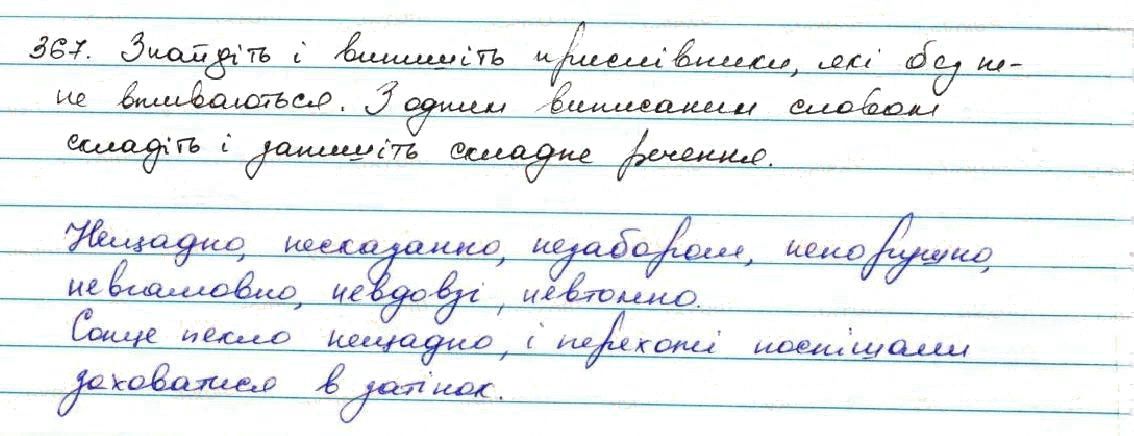 367. Знайдіть і випишіть прислівники, які без не-
не вживаються. З одним виписаним словом
складіть і запишіть складне речення.
Нещадно, несказанно, незабаром, непорушно,
невгамовно, невдовзі, невтомно.
Сонце пекло нещадно, і перехожі поспішали
заховатися в затінок.